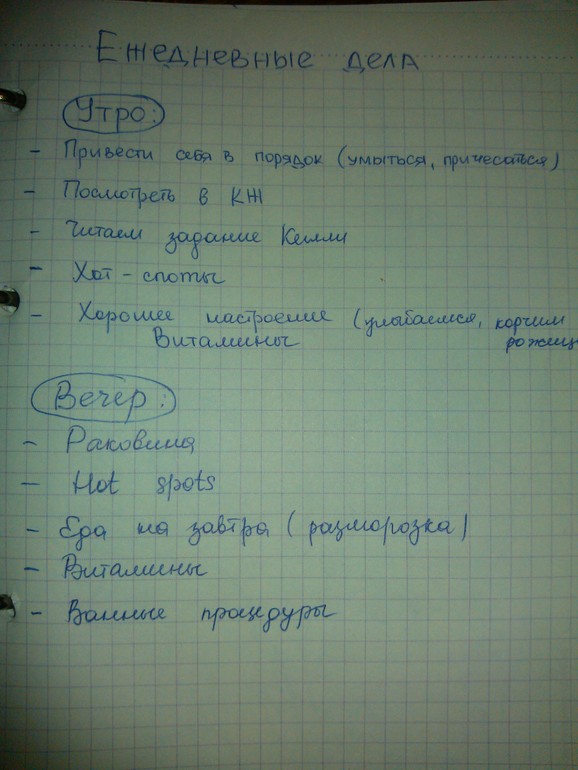 Ежедневные дела
Утро:
- Привести себя в порядок (умыться, причесаться)
- Посмотреть в КЖ
- Читаем задание Келли
- Хот-споты
- Хорошее настроение (улыбаемся, корчим
Витамины рожиц
Вечер:
- Раковина
- Hot spots
- Еда на завтра (разморозка)
- Витамины
- Ванные процедуры